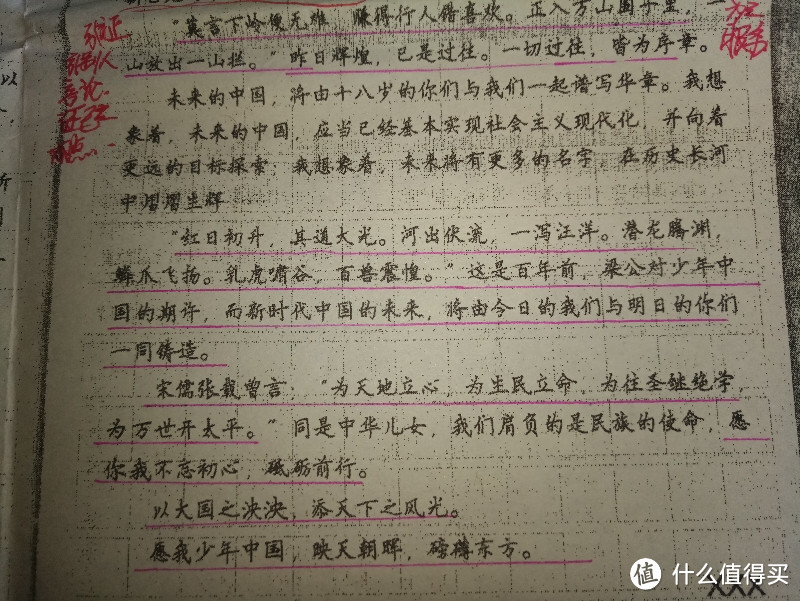 "莫言下岭便无难，赚得行人错喜欢。正入万山围子里，一
山放出一山拦。"昨日辉煌，已是过往。一切过往，皆为序章。
未来的中国，将由十八岁的你们与我们一起谱写华章。我想
象着，未来的中国，应当已经基本实现社会主义现代化，并向着
更远的目标探索；我想象着，未来将有更多的名字，在历史长河
中熠熠生辉
"红日初升，其道大光。河出伏流，一泻汪洋。潜龙腾渊，
鳞爪飞扬。乳虎啸谷，百兽震惶。"这是百年前，梁公对少年中
国的期许，而新时代中国的未来，将由今日的我们与明日的你们
一同铸造。
宋儒张载曾言："为天地立心，为生民立命，为往圣继绝学，
为万世开太平。"同是中华儿女，我们肩负的是民族的使命，愿
你我不忘初心，砥砺前行。
以大国之泱泱，添天下之风光。
愿我少年中国，映天朝晖，磅礴东方。
XXX
以
引别人
言论
值 什么值得买